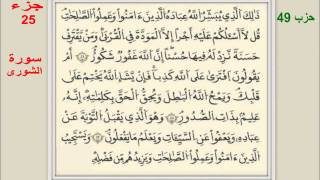 جزء
25
سورة
الشورى
حزب 49
ذَٰلِكَ ٱلَّذِي يُبَشِّرُ ٱللَّهُ عِبَادَهُ ٱلَّذِينَ ءَامَنُوا۟ وَعَمِلُوا۟ ٱلصَّٰلِحَٰتِ
قُل لَّآ أَسْـَٔلُكُمْ عَلَيْهِ أَجْرًا إِلَّا ٱلْمَوَدَّةَ فِي ٱلْقُرْبَىٰ وَمَن يَقْتَرِفْ
حَسَنَةً نَّزِدْ لَهُۥ فِيهَا حُسْنًا إِنَّ ٱللَّهَ غَفُورٌ شَكُورٌ ٢٣ أَمْ
يَقُولُونَ ٱفْتَرَىٰ عَلَى ٱللَّهِ كَذِبًا فَإِن يَشَإِ ٱللَّهُ يَخْتِمْ عَلَىٰ
قَلْبِكَ وَيَمْحُ ٱللَّهُ ٱلْبَٰطِلَ وَيُحِقُّ ٱلْحَقَّ بِكَلِمَٰتِهِۦٓ إِنَّهُۥ
عَلِيمٌۢ بِذَاتِ ٱلصُّدُورِ ٢٤ وَهُوَ ٱلَّذِي يَقْبَلُ ٱلتَّوْبَةَ عَنْ
عِبَادِهِۦ وَيَعْفُوا۟ عَنِ ٱلسَّيِّـَٔاتِ وَيَعْلَمُ مَا يَفْعَلُونَ ٢٥ وَيَسْتَجِيبُ
ٱلَّذِينَ ءَامَنُوا۟ وَعَمِلُوا۟ ٱلصَّٰلِحَٰتِ وَيَزِيدُهُم مِّن فَضْلِهِۦ